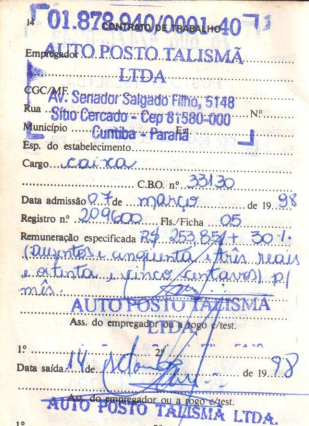 14 CONTRATO DE TRABALHO
01.878.940/0001-40
Empregador AUTO POSTO TALISMÃ
LTDA
CGC/MF
Av. Senador Salgado Filho, 5148
Rua Nº
Sítio Cercado - Cep 81580-000
Município Est.
Curitiba - Paraná
Esp. do estabelecimento
Cargo caixa
C.B.O. nº 33130
Data admissão 07 de março de 19 98
Registro nº 209600 Fls./Ficha 05
Remuneração especificada R$ 253,85 + 30%
(Duzentos e cinquenta e três reais
e oitenta e cinco centavos) p/
mês.
AUTO POSTO TALISMÃ
Ass. do empregador ou a rogo c/test.
LTDA
1º 2º
Data saída 14 de outubro de 19 98
Ass. do empregador ou a rogo c/test.
AUTO POSTO TALISMÃ LTDA.
1º